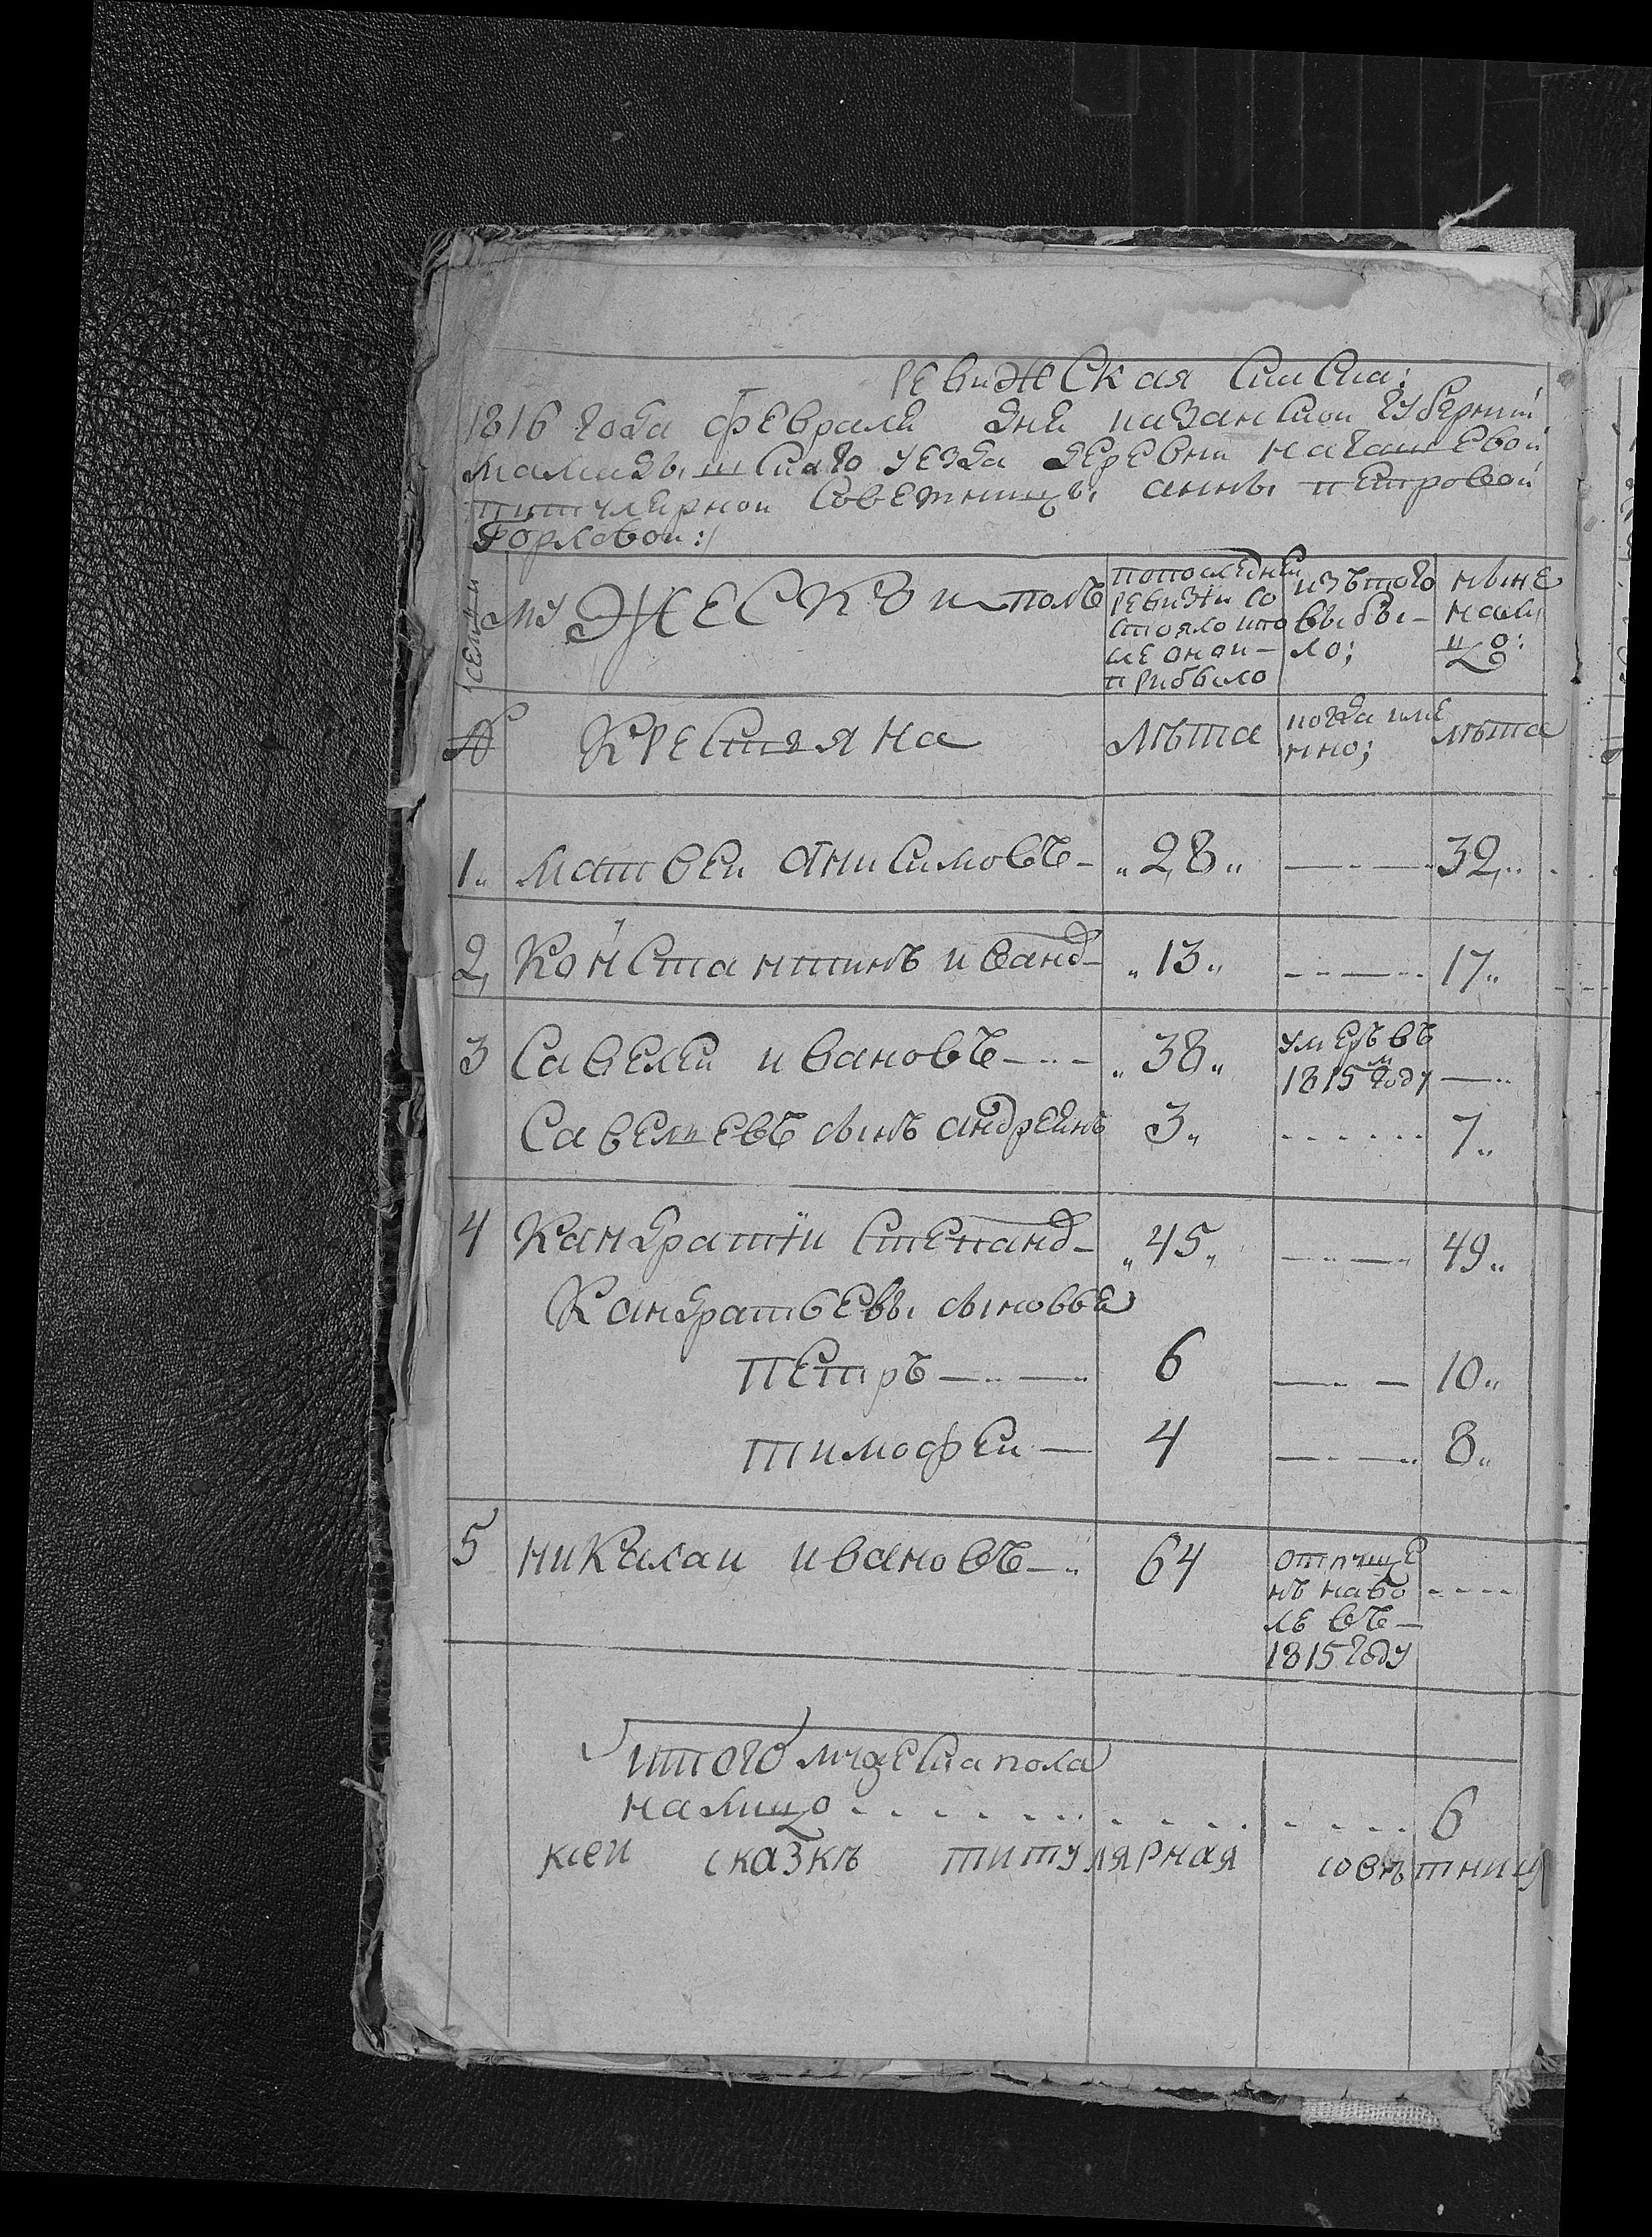 РЕвиЖСкая СкаСка:
1816 года февраля дня казанской губернии
мамадышскаго уезда деревни нагашевой
титулярной Советницы анны петровой
Горловой:/
семьи
МУЖЕСКЪ и полъ
попоследней ревизiи состояло ипосле оной прибыло
изътого выбыло;
ныне налицо:
№ КРЕСтьяна
лѣта
когда имянно;
лѣта
1.. матвей Анисимовъ- „28„ 32„
2, Константинъ иванд- „13„ 17„
3 Савелей ивановъ „38„ умеръ въ 1815м году
Савельевъ сынъ андреянъ 3„ 7„
4 Кандратiй Степанд- „45„ 49„
Кандратьевы сыновьЯ
Петръ 6 10„
тимофей 4 8„
5 никалай ивановъ 64 отпущенъ наволе въ 1815 году
итого мужеска пола
налицо 6
ксеи сказкѣ титулярная совѣтница